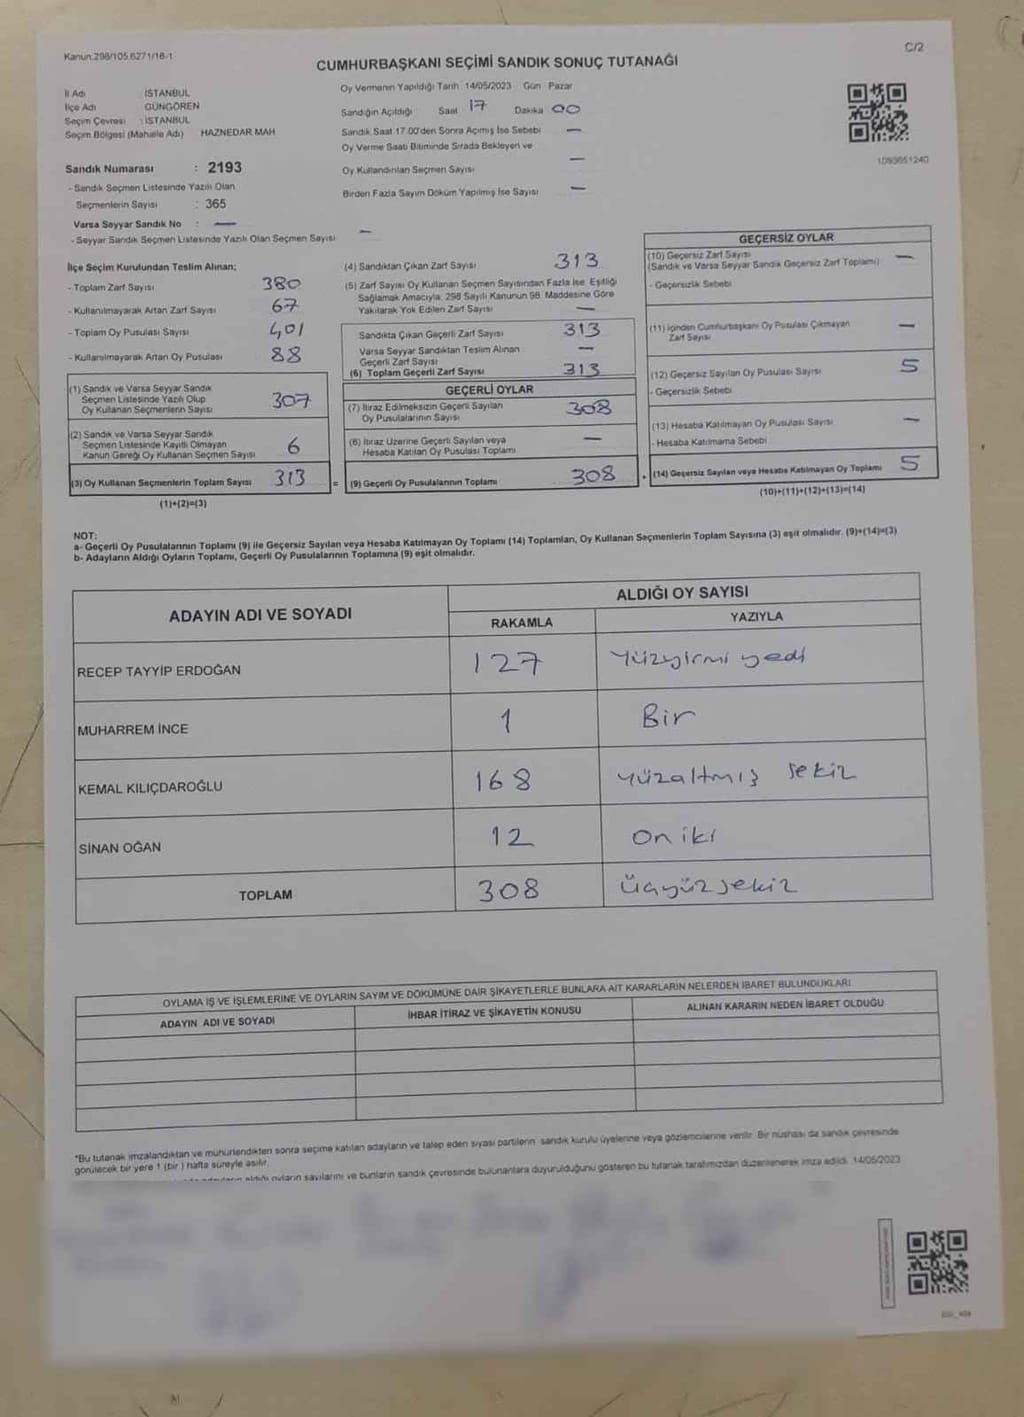 Kanun:298/105.6271/16-1
C/2
CUMHURBAŞKANI SEÇİMİ SANDIK SONUÇ TUTANAĞI
İl Adı : İSTANBUL
İlçe Adı : GÜNGÖREN
Seçim Çevresi : İSTANBUL
Seçim Bölgesi (Mahalle Adı) HAZNEDAR MAH
Sandık Numarası : 2193
- Sandık Seçmen Listesinde Yazılı Olan
Seçmenlerin Sayısı : 365
Varsa Seyyar Sandık No : —
- Seyyar Sandık Seçmen Listesinde Yazılı Olan Seçmen Sayısı —
Oy Vermenin Yapıldığı Tarih: 14/05/2023 Gün: Pazar
Sandığın Açıldığı Saat 17 Dakika 00
Sandık Saat 17.00'den Sonra Açımış İse Sebebi —
Oy Verme Saati Bitiminde Sırada Bekleyen ve
Oy Kullandırılan Seçmen Sayısı —
Birden Fazla Sayım Döküm Yapılmış İse Sayısı —
1093651240
İlçe Seçim Kurulundan Teslim Alınan;
- Toplam Zarf Sayısı 380
- Kullanılmayarak Artan Zarf Sayısı 67
- Toplam Oy Pusulası Sayısı 401
- Kullanılmayarak Artan Oy Pusulası 88
(1) Sandık ve Varsa Seyyar Sandık
Seçmen Listesinde Yazılı Olup
Oy Kullanan Seçmenlerin Sayısı 307
(2) Sandık ve Varsa Seyyar Sandık
Seçmen Listesinde Kayıtlı Olmayan
Kanun Gereği Oy Kullanan Seçmen Sayısı 6
(3) Oy Kullanan Seçmenlerin Toplam Sayısı 313 =
(1)+(2)=(3)
(4) Sandıktan Çıkan Zarf Sayısı 313
(5) Zarf Sayısı Oy Kullanan Seçmen Sayısından Fazla İse, Eşitliği
Sağlamak Amacıyla, 298 Sayılı Kanunun 98. Maddesine Göre
Yakılarak Yok Edilen Zarf Sayısı —
Sandıkta Çıkan Geçerli Zarf Sayısı 313
Varsa Seyyar Sandıktan Teslim Alınan
Geçerli Zarf Sayısı —
(6) Toplam Geçerli Zarf Sayısı 313
GEÇERLİ OYLAR
(7) İtiraz Edilmeksizin Geçerli Sayılan
Oy Pusulalarının Sayısı 308
(8) İtiraz Üzerine Geçerli Sayılan veya
Hesaba Katılan Oy Pusulası Toplamı —
(9) Geçerli Oy Pusulalarının Toplamı 308 +
GEÇERSİZ OYLAR
(10) Geçersiz Zarf Sayısı
(Sandık ve Varsa Seyyar Sandık Geçersiz Zarf Toplamı) —
- Geçersizlik Sebebi
(11) İçinden Cumhurbaşkanı Oy Pusulası Çıkmayan
Zarf Sayısı —
(12) Geçersiz Sayılan Oy Pusulası Sayısı 5
- Geçersizlik Sebebi
(13) Hesaba Katılmayan Oy Pusulası Sayısı —
- Hesaba Katılmama Sebebi
(14) Geçersiz Sayılan veya Hesaba Katılmayan Oy Toplamı 5
(10)+(11)+(12)+(13)=(14)
NOT:
a- Geçerli Oy Pusulalarının Toplamı (9) ile Geçersiz Sayılan veya Hesaba Katılmayan Oy Toplamı (14) Toplamları, Oy Kullanan Seçmenlerin Toplam Sayısına (3) eşit olmalıdır. (9)+(14)=(3)
b- Adayların Aldığı Oyların Toplamı, Geçerli Oy Pusulalarının Toplamına (9) eşit olmalıdır.
ADAYIN ADI VE SOYADI ALDIĞI OY SAYISI
RAKAMLA YAZIYLA
RECEP TAYYİP ERDOĞAN 127 Yüzyirmi yedi
MUHARREM İNCE 1 Bir
KEMAL KILIÇDAROĞLU 168 yüzaltmış sekiz
SİNAN OĞAN 12 on iki
TOPLAM 308 üçyüz sekiz
OYLAMA İŞ VE İŞLEMLERİNE VE OYLARIN SAYIM VE DÖKÜMÜNE DAİR ŞİKAYETLERLE BUNLARA AİT KARARLARIN NELERDEN İBARET BULUNDUKLARI
ADAYIN ADI VE SOYADI İHBAR İTİRAZ VE ŞİKAYETİN KONUSU ALINAN KARARIN NEDEN İBARET OLDUĞU
*Bu tutanak imzalandıktan ve mühürlendikten sonra seçime katılan adayların ve talep eden siyasi partilerin sandık kurulu üyelerine veya gözlemcilerine verilir. Bir nüshası da sandık çevresinde
görülecek bir yere 1 (bir ) hafta süreyle asılır.
aldığı oyların sayılarını ve bunların sandık çevresinde bulunanlara duyurulduğunu gösteren bu tutanak tarafımızdan düzenlenerek imza edildi. 14/05/2023